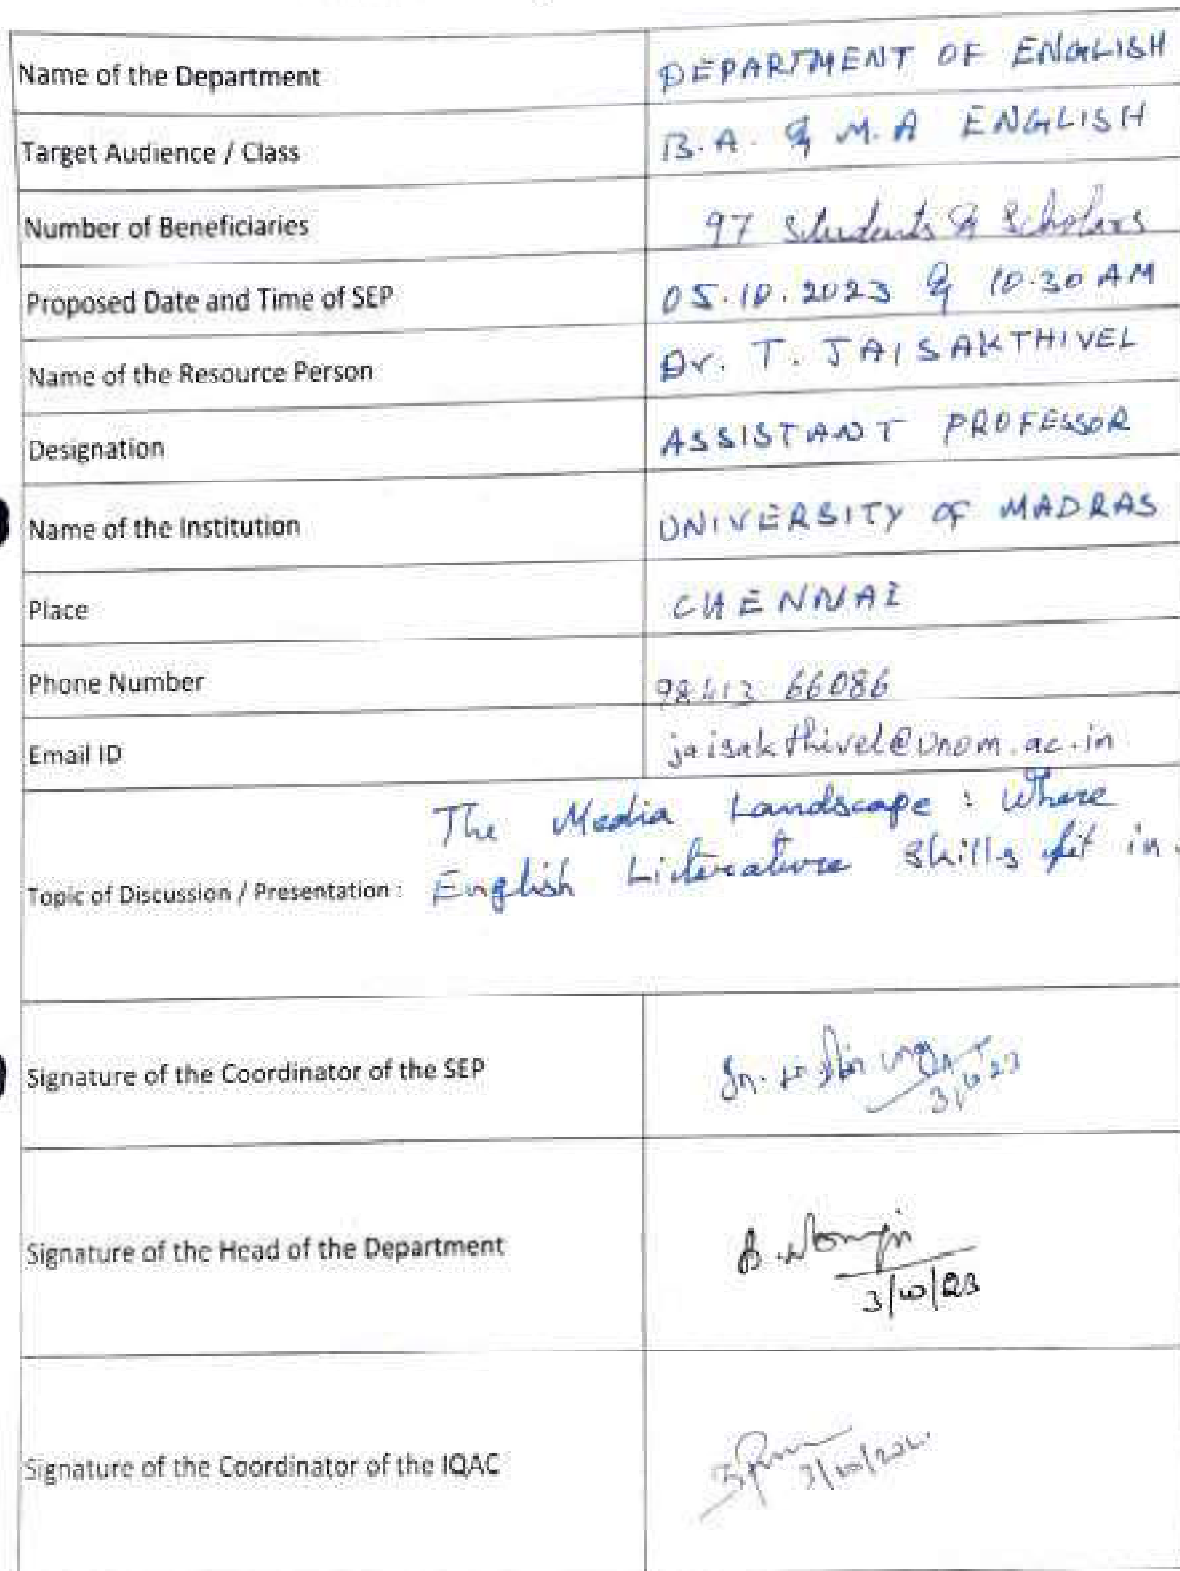 Name of the Department DEPARTMENT OF ENGLISH
Target Audience / Class B.A. & M.A ENGLISH
Number of Beneficiaries 97 Students & Scholars
Proposed Date and Time of SEP 05.10.2023 & 10.30 AM
Name of the Resource Person Dr. T. JAISAKTHIVEL
Designation ASSISTANT PROFESSOR
Name of the Institution UNIVERSITY OF MADRAS
Place CHENNAI
Phone Number 98413 66086
Email ID jaisakthivel@unom.ac.in
The Media Landscape : Where
Topic of Discussion / Presentation : English Literature Skills fit in.
Signature of the Coordinator of the SEP
3/10/23
Signature of the Head of the Department
3/10/23
Signature of the Coordinator of the IQAC